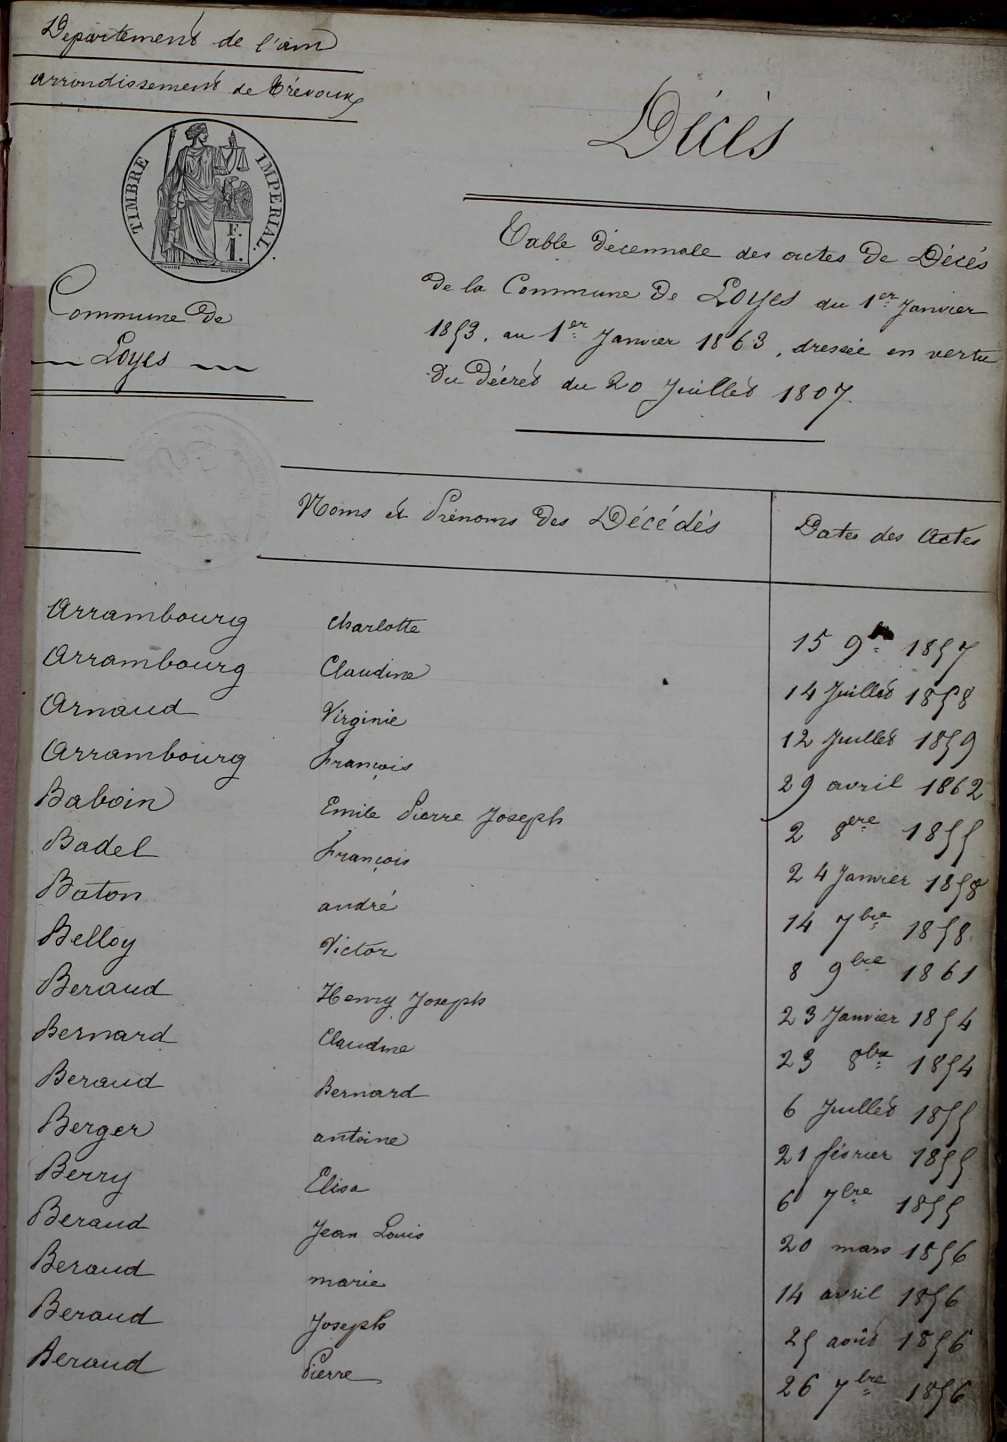 Département de l'ain
arrondissement de Trévoux
TIMBRE IMPERIAL.
F.
1.
Commune de
Loyes
Décès
Table décennale des actes de Décès
de la Commune de Loyes du 1er Janvier
1853, au 1er Janvier 1863, dressée en vertu
du décret du 20 Juillet 1807.
Noms et Prénoms des Décédés Dates des Actes
Arrambourg Charlotte 15 9b 1857
Arrambourg Claudine 14 Juillet 1858
Arnaud Virginie 12 Juillet 1859
Arrambourg François 29 avril 1862
Baboin Emile Pierre Joseph 2 8ere 1855
Badel François 24 Janvier 1858
Baton andré 14 7bre 1858
Belloy Victor 8 9bre 1861
Beraud Henry Joseph 23 Janvier 1854
Bernard Claudine 23 8bre 1854
Beraud Bernard 6 Juillet 1855
Berger antoine 21 février 1855
Berry Elisa 6 7bre 1855
Beraud Jean Louis 20 mars 1856
Beraud marie 14 avril 1856
Beraud Joseph 25 août 1856
Beraud Pierre 26 7bre 1856